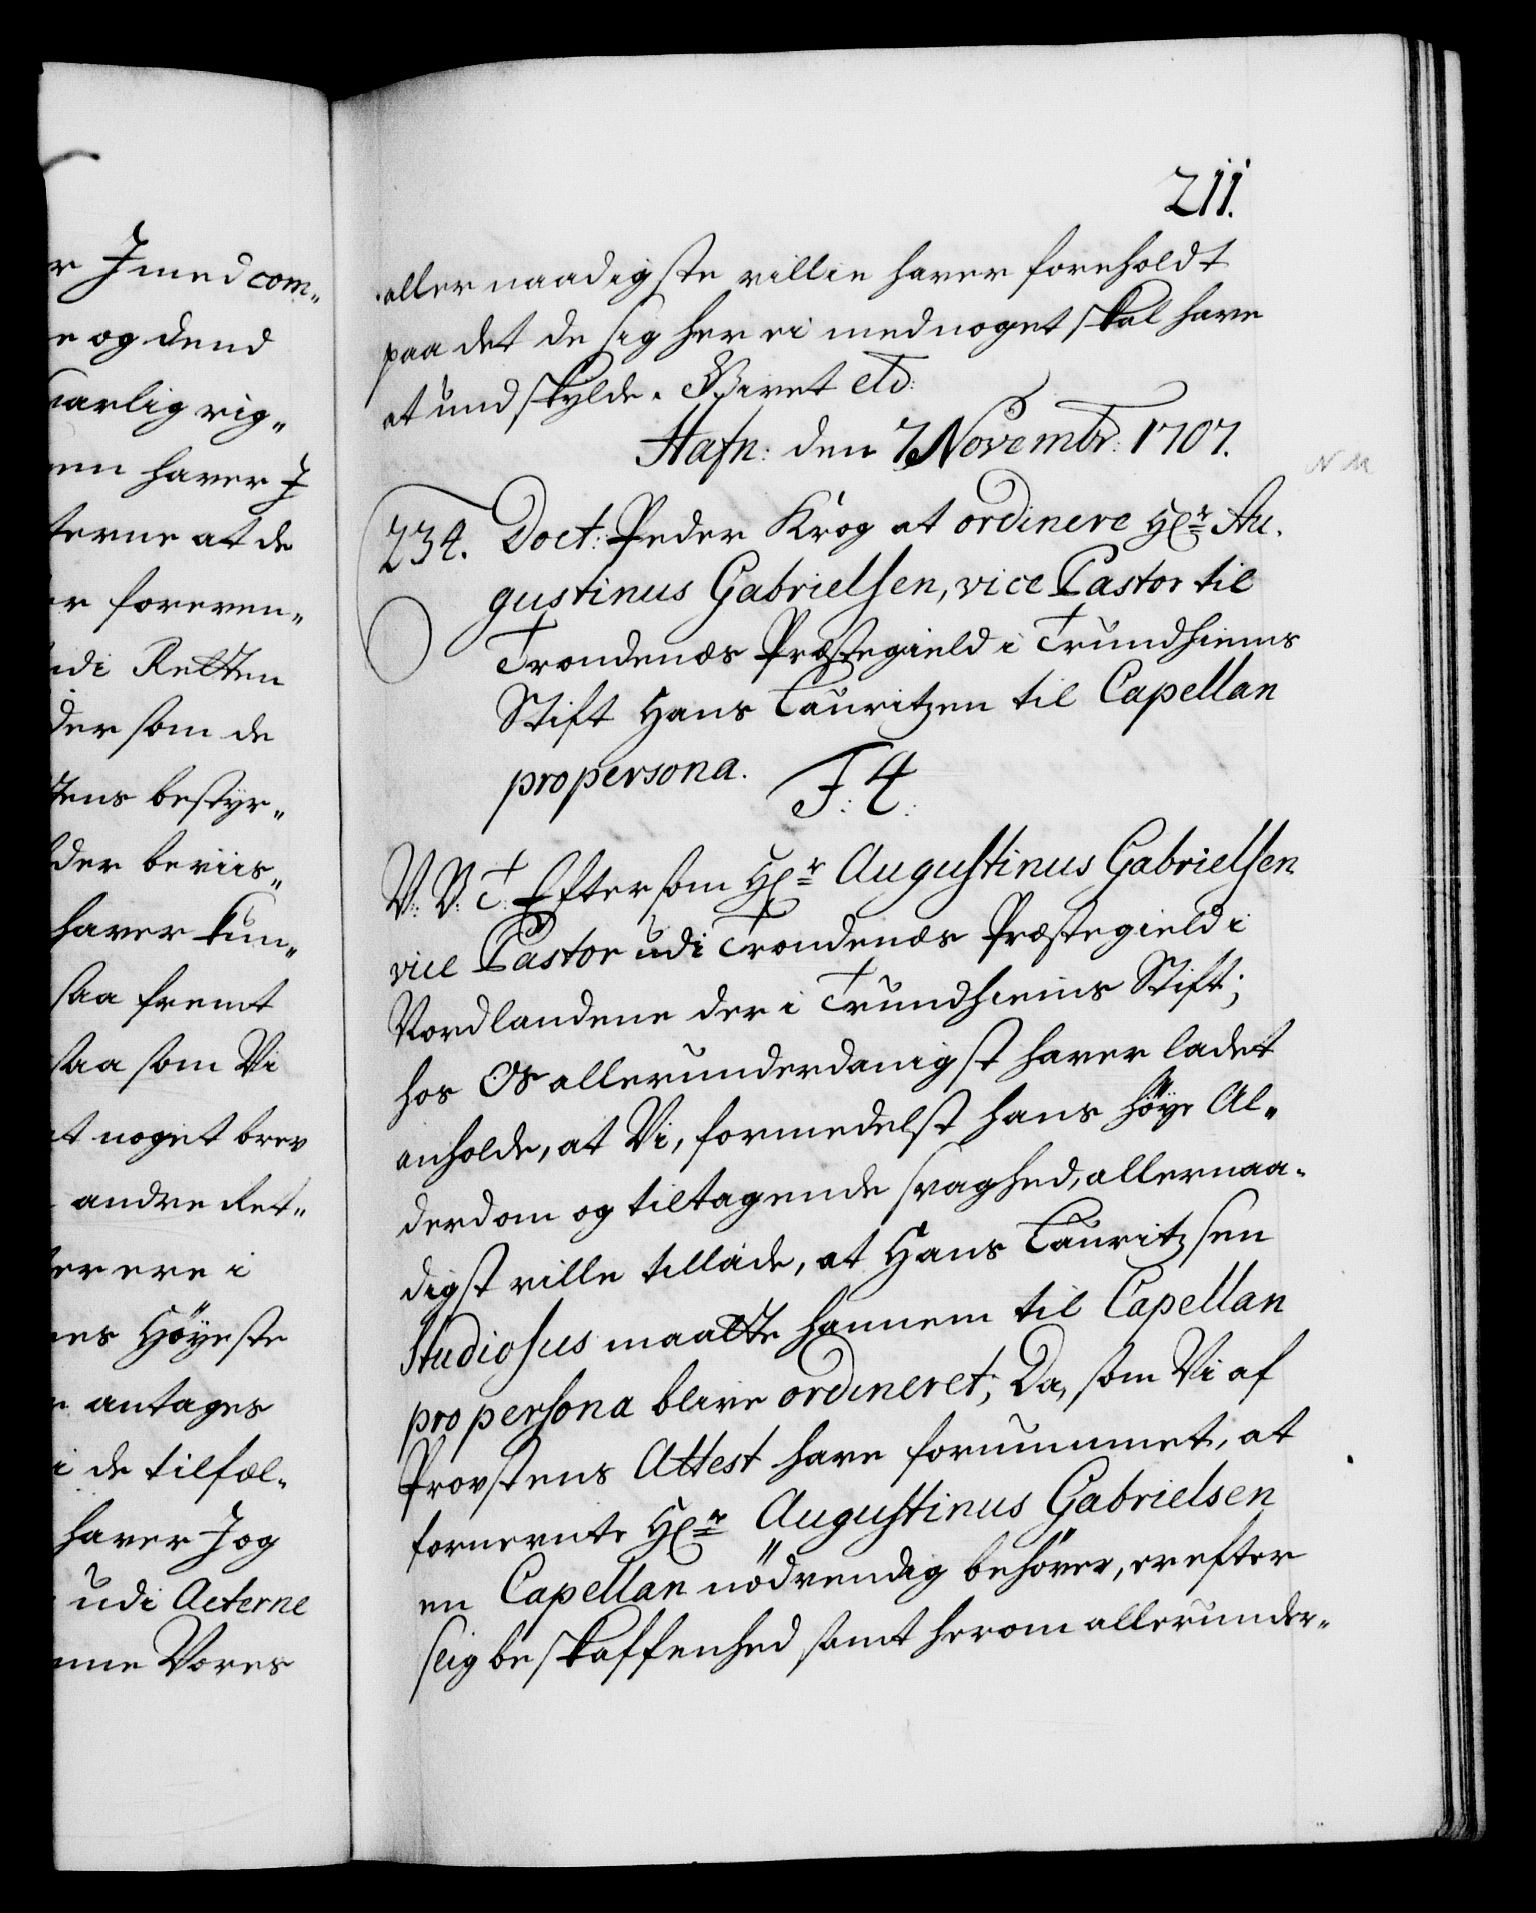 r I med com„
e og dend
narlig vig„
men haver I
terne at de
er foreven„
udi Retten
der som de
tens bestyr„
der beviis„
haver kun„
saa fremt
saa som Vi
at noget brev
andre Ret„
er ere i
nes Höyeste
antages
i de tilfæl„
haver I og
udi Acterne
nne Vores
211.
allernaadigste villie haver foreholdt
paa det de sig her ei med noget skal have
at undskylde. Skrevet etc:
Hafn: den 7 Novembr: 1707.
N M
234. Doct: Peder Krog at ordinere Hr Au„
gustinus Gabrielsen, vice Pastor til
Trondenæs Præstegield i Trundhiems
Stift Hans Lauritzen til Capellan
pro persona. F: 4:
V: V: T: Eftersom Hr Augustinus Gabrielsen
vice Pastor udi Trondenæs Præstegield i
Nordlandene der i Trundhiems Stift;
hos Os allerunderdanigst haver ladet
anholde, at Vi, formedelst hans höye Al„
derdom og tiltagende svaghed, allernaa„
digst ville tillade, at Hans Lauritzsen
Studiosus maatte hannem til Capellan
pro persona blive ordineret; Da, som Vi af
Provstens Attest have fornummet, at
fornevnte Hr Augustinus Gabrielsen
en Capellan nödvendig behöver, er efter
slig beskaffenhed samt herom allerunder„